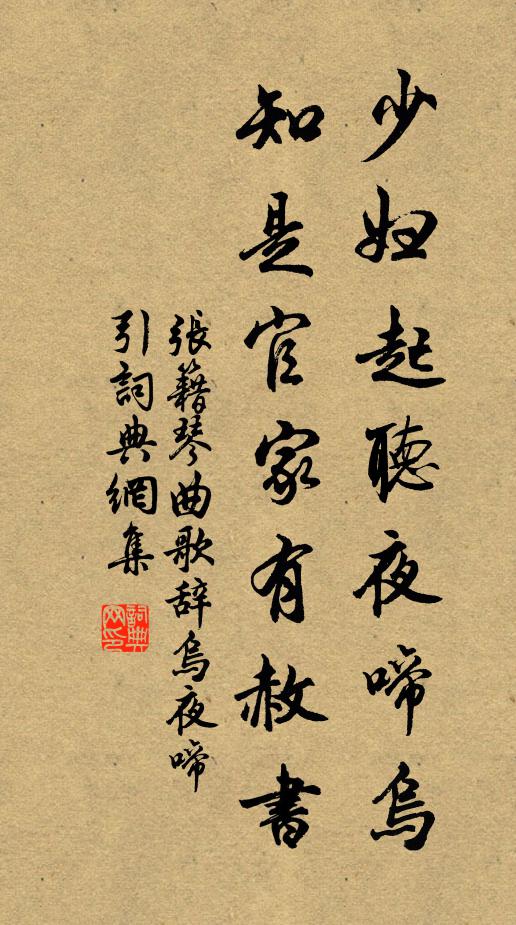 少妇起聽夜啼烏
知是官家有赦書
張籍琴曲歌辞烏夜啼
引詞典網集
詞典网印